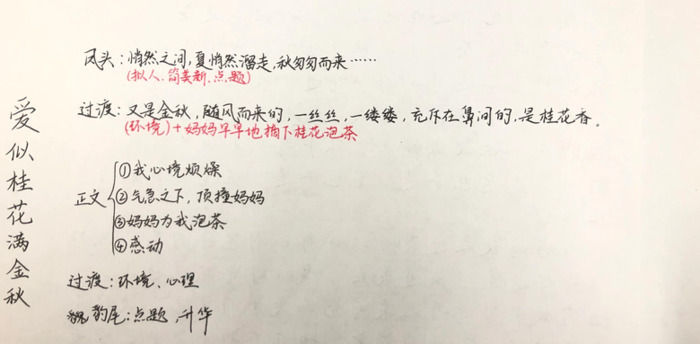 爱似桂花满金秋
凤头:悄然之间,夏悄然溜走,秋匆匆而来……
(拟人、简美新、点题)
过渡:又是金秋,随风而来的,一丝丝,一缕缕,充斥在鼻间的,是桂花香。
(环境)+妈妈早早地摘下桂花泡茶
正文
①我心境烦燥
②气急之下,顶撞妈妈
③妈妈为我泡茶
④感动
过渡:环境、心理
豹尾:点题,升华